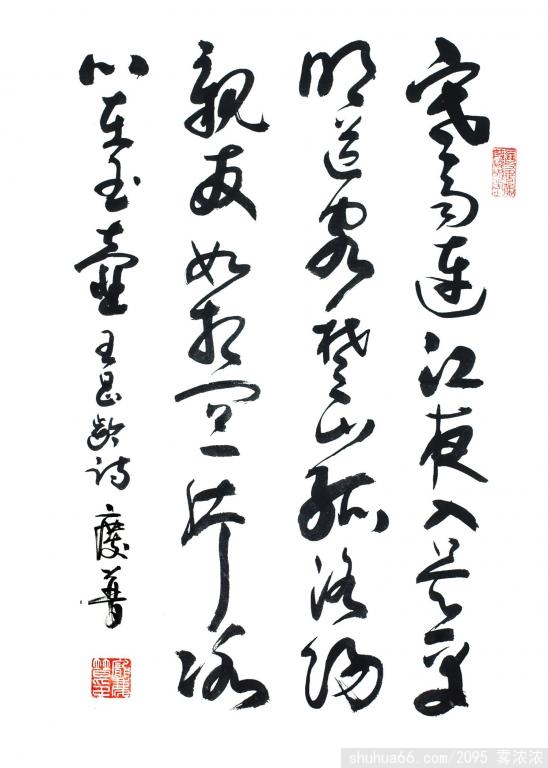 寒雨連江夜入吴平
明送客楚山孤洛陽
親友如相问一片冰
心在玉壺 王昌龄诗
shuhua66.com/2095 雾浓浓